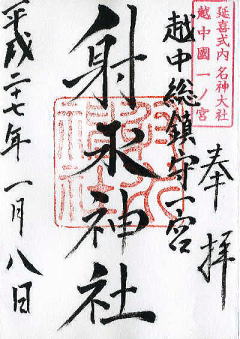 延喜式内名神大社
越中國一ノ宮
奉拝
越中総鎮守一宮
射水神社
平成二十七年一月八日